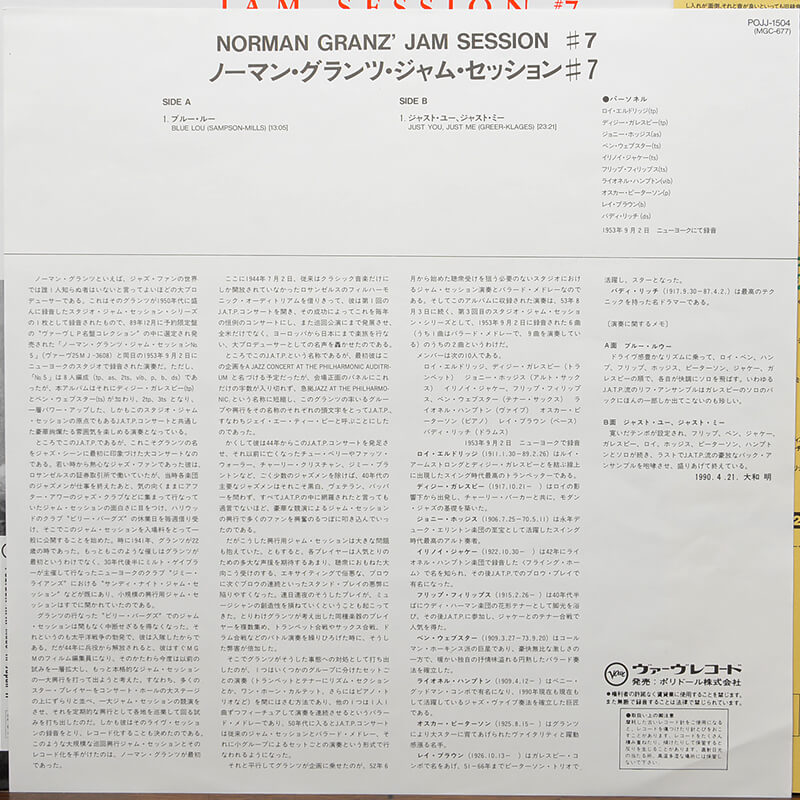 JAM SESSION #7
POJJ-1504
(MGC-677)
NORMAN GRANZ' JAM SESSION #7
ノーマン・グランツ・ジャム・セッション#7
SIDE A
1. ブルー・ルー
BLUE LOU (SAMPSON-MILLS) [13:05]
SIDE B
1. ジャスト・ユー、ジャスト・ミー
JUST YOU, JUST ME (GREER-KLAGES) [23:21]
●パーソネル
ロイ・エルドリッジ(tp)
ディジー・ガレスピー(tp)
ジョニー・ホッジス(as)
ベン・ウェブスター(ts)
イリノイ・ジャケー(ts)
フリップ・フィリップス(ts)
ライオネル・ハンプトン(vib)
オスカー・ピーターソン(p)
レイ・ブラウン(b)
バディ・リッチ(ds)
1953年9月2日 ニューヨークにて録音
ノーマン・グランツといえば、ジャズ・ファンの世界
では誰1人知らぬ者はいないと言ってよいほどの大プロ
デューサーである。これはそのグランツが1950年代に盛
んに録音したスタジオ・ジャム・セッション・シリーズ
の1枚として録音されたもので、89年12月に予約限定盤
の"ヴァーヴLP名盤コレクション"の中に選定され発
売された「ノーマン・グランツ・ジャム・セッションNo.
5」(ヴァーヴ25MJ-3608)と同日の1953年9月2日に
ニューヨークのスタジオで録音された演奏だ。ただし、
「No.5」は8人編成(tp, as, 2ts, vib, p, b, ds)であっ
たが、本アルバムはそれにディジー・ガレスピー(tp)
とベン・ウェブスター(ts)が加わり、2tp、3tsとなり、
一層パワー・アップした、しかもこのスタジオ・ジャム・
セッションの原点でもあるJ.A.T.P.コンサートと共通し
た豪華絢爛たる雰囲気を楽しめる演奏となっている。
ところでこのJ.A.T.P.であるが、これこそグランツの名
をジャズ・シーンに最初に印象づけた大コンサートなの
である。若い時から熱心なジャズ・ファンであった彼は、
ロサンゼルスの証券取引所で働いていたが、当時各楽団
のジャズメンが仕事を終えたあと、気の向くままにアフ
ター・アワーのジャズ・クラブなどに集まって行なって
いたジャム・セッションの面白さに目をつけ、ハリウッ
ドのクラブ"ビリー・バーグズ"の休業日を毎週借り受
け、そこでこのジャム・セッションを入場料をとって一
般に公開することを始めた。時に1941年、グランツが22
歳の時であった。もっともこのような催しはグランツが
最初というわけでなく、30年代後半にミルト・ゲイブラ
ーが主催して行なったニューヨークのクラブ"ジミー・
ライアンズ"における"サンディ・ナイト・ジャム・セ
ッション"などが既にあり、小規模の興行用ジャム・セ
ッションはすでに開かれていたのである。
グランツの行なった"ビリー・バーグズ"でのジャム・
セッションは間もなく中断せざるを得なくなった。それ
というのも太平洋戦争の勃発で、彼は入隊したからであ
る。だが44年に兵役から解放されると、彼はすぐMG
Mのフィルム編集員になり、そのかたわら今度は以前の
試みを一層拡大し、もっと本格的なジャム・セッション
の一大興行を打って出ようと考えた。すなわち、多くの
スター・プレイヤーをコンサート・ホールの大ステージ
の上にずらりと並べ、一大ジャム・セッションの競演を
させ、それを定期的な興行として各地を巡業して回る試
みを打ち出したのだ。しかも彼はそのライヴ・セッショ
ンの録音をとり、レコード化することも決めたのである。
このような大規模な巡回興行ジャム・セッションとその
レコード化を手がけたのは、ノーマン・グランツが最初
であった。
ここに1944年7月2日、従来はクラシック音楽だけに
しか開放されていなかったロサンゼルスのフィルハーモ
ニック・オーディトリアムを借りきって、彼は第1回の
J.A.T.P.コンサートを開き、その成功によってこれを毎年
の恒例のコンサートにし、また巡回公演にまで発展させ、
全米だけでなく、ヨーロッパから日本にまで楽旅を行な
い、大プロデューサーとしての名声を轟かせたのである。
ところでこのJ.A.T.P.という名称であるが、最初彼はこ
の企画をA JAZZ CONCERT AT THE PHILHARMONIC AUDITRIU
Mと名づける予定だったが、会場正面のパネルにこれ
だけの字数が入り切れず、急拠JAZZ AT THE PHILHARMO
NIC.という名称に短縮し、このグランツの率いるグルー
プや興行をその名称のそれぞれの頭文字をとってJ.A.T.P.
すなわちジェイ・エー・ティー・ピーと呼ぶことにした
のであった。
かくして彼は44年からこのJ.A.T.P.コンサートを発足さ
せ、それ以前に亡くなったチュー・ベリーやファッツ・
ウォーラー、チャーリー・クリスチャン、ジミー・ブラ
ントンなど、ごく少数のジャズメンを除けば、40年代の
主要なジャズメンはそれこそ黒白、ヴェテラン、バッパ
ーを問わず、すべてJ.A.T.P.の中に網羅されたと言っても
過言でないほど、豪華な競演によるジャム・セッション
の興行で多くのファンを興奮のるつぼに叩き込んでいっ
たのである。
だがこうした興行用ジャム・セッションは大きな問題
も抱えていた。ともすると、各プレイヤーは人気とりの
ための多大な声援を期待するあまり、聴衆におもねた大
向こう受けのする、エキサイティングで俗悪な、ブロウ
に次ぐブロウの連続といったスタンド・プレイの悪弊に
陥りやすくなった。連日連夜のそうしたプレイが、ミュ
ージシャンの創造性を損ねていくということも起こって
きた。とりわけグランツが考え出した同種楽器のプレイ
ヤーを複数集め、トランペット合戦やサックス合戦、ド
ラム合戦などのバトル演奏を繰りひろげた時に、そうし
た弊害が倍加した。
そこでグランツがそうした事態への対処として打ち出
したのが、1つはいくつかのグループに分けたセットご
との演奏(トランペットとテナーにリズム・セクション
とか、ワン・ホーン・カルテット、さらにはピアノ・ト
リオなど)を間にはさむ方法であり、他の1つは1人1
曲ずつフィーチュアして演奏を連続させるというバラー
ド・メドレーであり、50年代に入るとJ.A.T.P.コンサート
は従来のジャム・セッションとバラード・メドレー、そ
れに小グループによるセットごとの演奏という形式で行
なわれるようになった。
それと平行してグランツが企画に乗せたのが、52年6
月から始めた聴衆受けを狙う必要のないスタジオにおけ
るジャム・セッション演奏とバラード・メドレーなので
ある。そしてこのアルバムに収録された演奏は、53年8
月3日に続く、第3回目のスタジオ・ジャム・セッショ
ン・シリーズとして、1953年9月2日に録音された6曲
(うち1曲はバラード・メドレーで、9曲を演奏してい
る)のうちの2曲というわけだ。
メンバーは次の10人である。
ロイ・エルドリッジ、ディジー・ガレスピー(トラ
ンペット) ジョニー・ホッジス(アルト・サック
ス) イリノイ・ジャケー、フリップ・フィリップ
ス、ベン・ウェブスター(テナー・サックス) ラ
イオネル・ハンプトン(ヴァイブ) オスカー・ピ
ーターソン(ピアノ) レイ・ブラウン(ベース)
バディ・リッチ(ドラムス)
1953年9月2日 ニューヨークで録音
ロイ・エルドリッジ(1911.1.30-89.2.26)はルイ・
アームストロングとディジー・ガレスピーとを結ぶ線上
に出現したスイング時代最高のトランペッターである。
ディジー・ガレスピー(1917.10.21- )はロイの影
響下から出発し、チャーリー・パーカーと共に、モダン・
ジャズの基礎を築いた。
ジョニー・ホッジス(1906.7.25-70.5.11)は永年デ
ューク・エリントン楽団の至宝として活躍したスイング
時代最高のアルト奏者。
イリノイ・ジャケー(1922.10.30- )は42年にライ
オネル・ハンプトン楽団で録音した《フライング・ホー
ム》で名を知られ、その後J.A.T.P.でのブロウ・プレイで
有名になった。
フリップ・フィリップス(1915.2.26- )は40年代半
ばにウディ・ハーマン楽団の花形テナーとして脚光を浴
び、その後J.A.T.P.に参加し、ジャケーとのテナー合戦で
人気を得た。
ベン・ウェブスター(1909.3.27-73.9.20)はコール
マン・ホーキンス派の巨星であり、豪快無比な激しさの
一方で、暖かい独自の抒情味溢れる円熟したバラード奏
法を確立した。
ライオネル・ハンプトン(1909.4.12- )は、ベニー・
グッドマン・コンボで有名になり、1990年現在も現在も
して活躍しているジャズ・ヴァイブ奏法を確立した巨匠
である。
オスカー・ピーターソン(1925.8.15- )はグランツ
により大スターに育てあげられたヴァイタリティと躍動
感漲る名手。
レイ・ブラウン(1926.10.13- )はガレスピー・コ
ンボで名をあげ、51-66年までピーターソン・トリオで
活躍し、スターとなった。
バディ・リッチ(1917.9.30-87.4.2.)は最高のテク
ニックを持った名ドラマーである。
〔演奏に関するメモ〕
A面 ブルー・ルウー
ドライヴ感豊かなリズムに乗って、ロイ・ベン、ハン
プ、フリップ、ホッジス、ピーターソン、ジャケー、ガ
レスピーの順で、各自が快調にソロを飛ばす。いわゆる
J.A.T.P.流のリフ・アンサンブルはガレスピーのソロのバ
ックにほんの一部しか出てこないのも珍しい。
B面 ジャスト・ユー、ジャスト・ミー
寛いだテンポが設定され、フリップ、ベン、ジャケー、
ガレスピー、ロイ、ホッジス、ピーターソン、ハンプト
ンとソロが続き、ラストでJ.A.T.P.流の豪放なバック・ア
ンサンブルを咆哮させ、盛りあげて終えている。
1990.4.21. 大和 明
Verve
ヴァーヴレコード
発売：ポリドール株式会社
●権利者の許諾なく賃貸業に使用することを禁じます。
また無断で録音することは法律で禁じられています。
●取扱い上の御注意